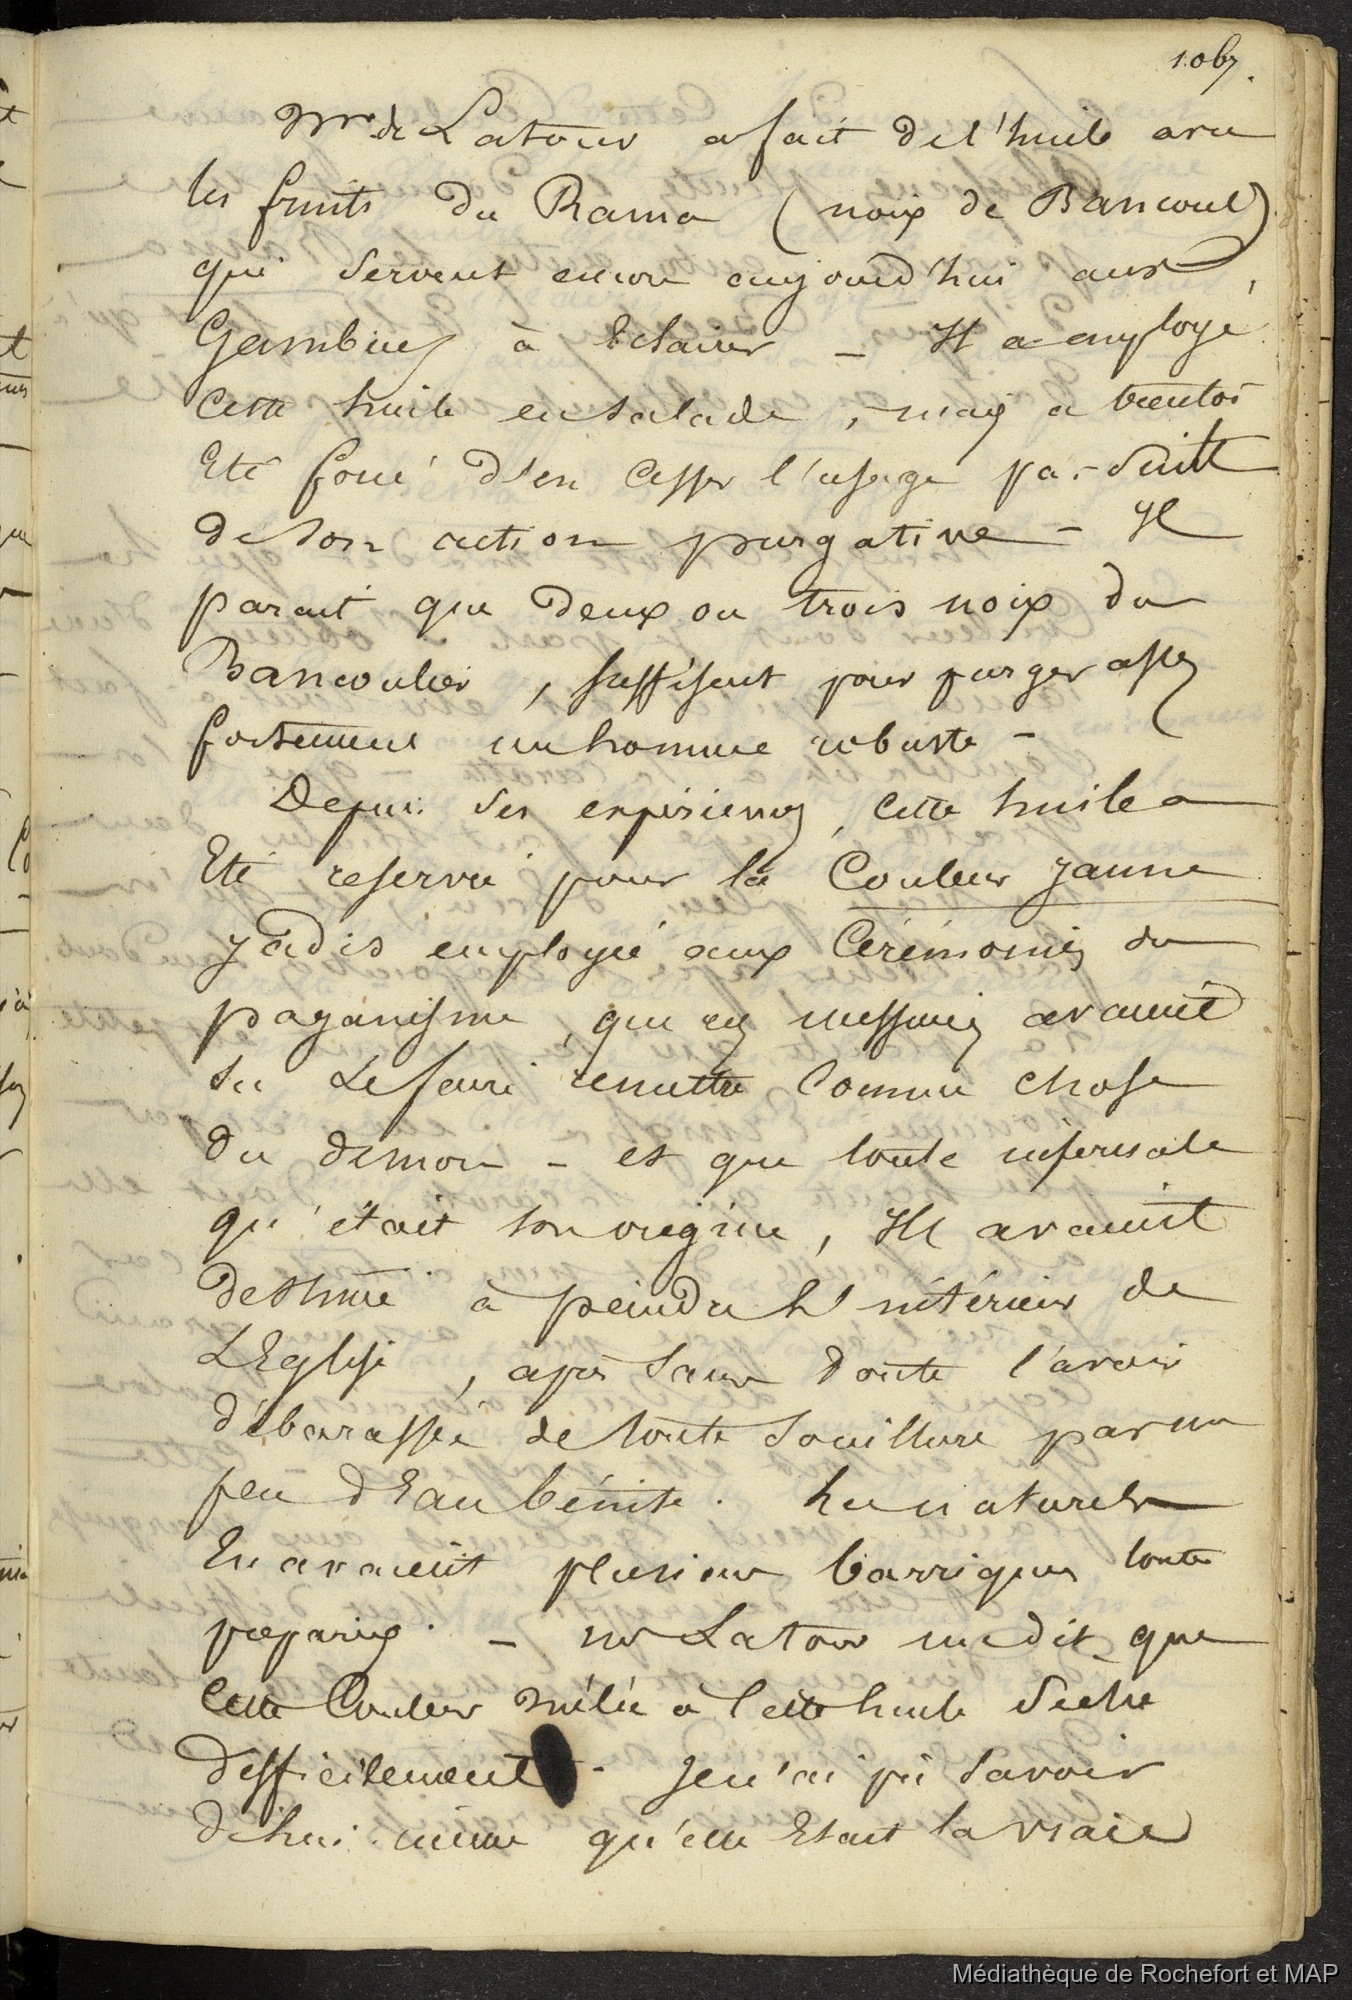 1.067.
Mr. de Latour a fait de l'huile avec
les fruits du Rama (noix de Bancoul)
qui servent encore aujourd'hui aux
Gambiers à Eclairer – Il a employé
cette huile en salade, mais a bientôt
Eté forcé d'en cesser l'usage par suite
de son action purgative – Il
parait que deux ou trois noix du
Bancoulier, suffisent pour purger assez
fortement un homme robuste –
Depuis ses expériences, cette huile a
Eté reservée pour la Couleur jaune
jadis employée aux Cérémonies du
paganisme, que ces messieurs avaient
su se faire remettre comme chose
du demon – et que toute infernale
qu'était son origine, Ils avaient
destinée à peindre l'intérieur de
L'Eglise, après sans doute l'avoir
débarassée de toute souillure par un
peu d'Eau bénite. Les naturels
En avaient plusieurs barriques toutes
preparées. – mr Latour me dit que
cette Couleur mêlée à cette huile seche
difficilement – Je n'ai pû savoir
de lui même qu'elle Etait la vraie
Médiathèque de Rochefort et MAP